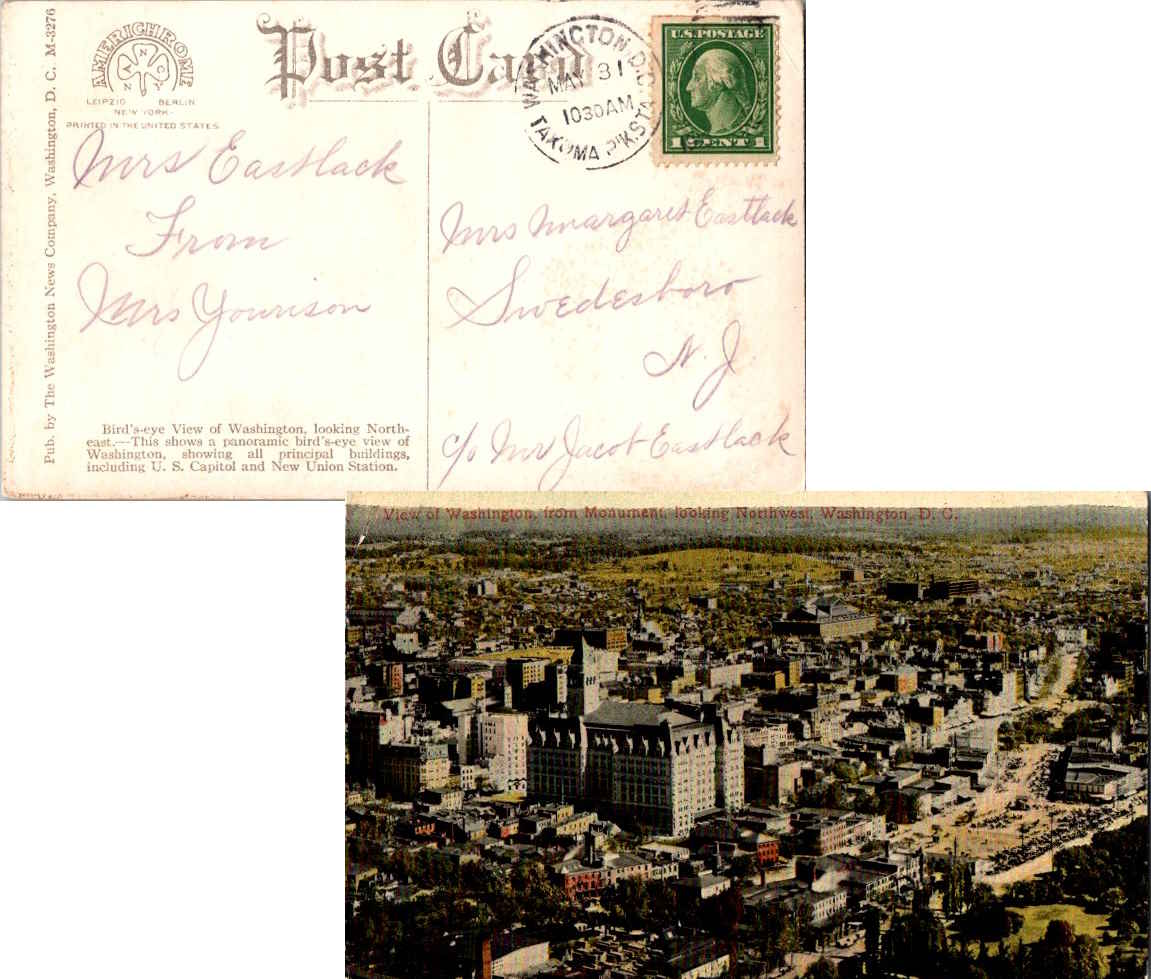 AMERICHROME
A N C
N Y
LEIPZIG BERLIN
NEW YORK
PRINTED IN THE UNITED STATES
Post Card
WASHINGTON, D.C.
MAY 31
1030 AM
TAKOMA P'K. STA.
U.S. POSTAGE
1 CENT 1
Pub. by The Washington News Company, Washington, D. C. M-3276
Mrs Eastlack
From
Mrs Younison
Bird's-eye View of Washington, looking North-
east.—This shows a panoramic bird's-eye view of
Washington, showing all principal buildings,
including U. S. Capitol and New Union Station.
Mrs Margaret Eastlack
Swedesboro
N. J.
c/o Mr Jacob Eastlack
View of Washington, from Monument, looking Northwest, Washington, D. C.